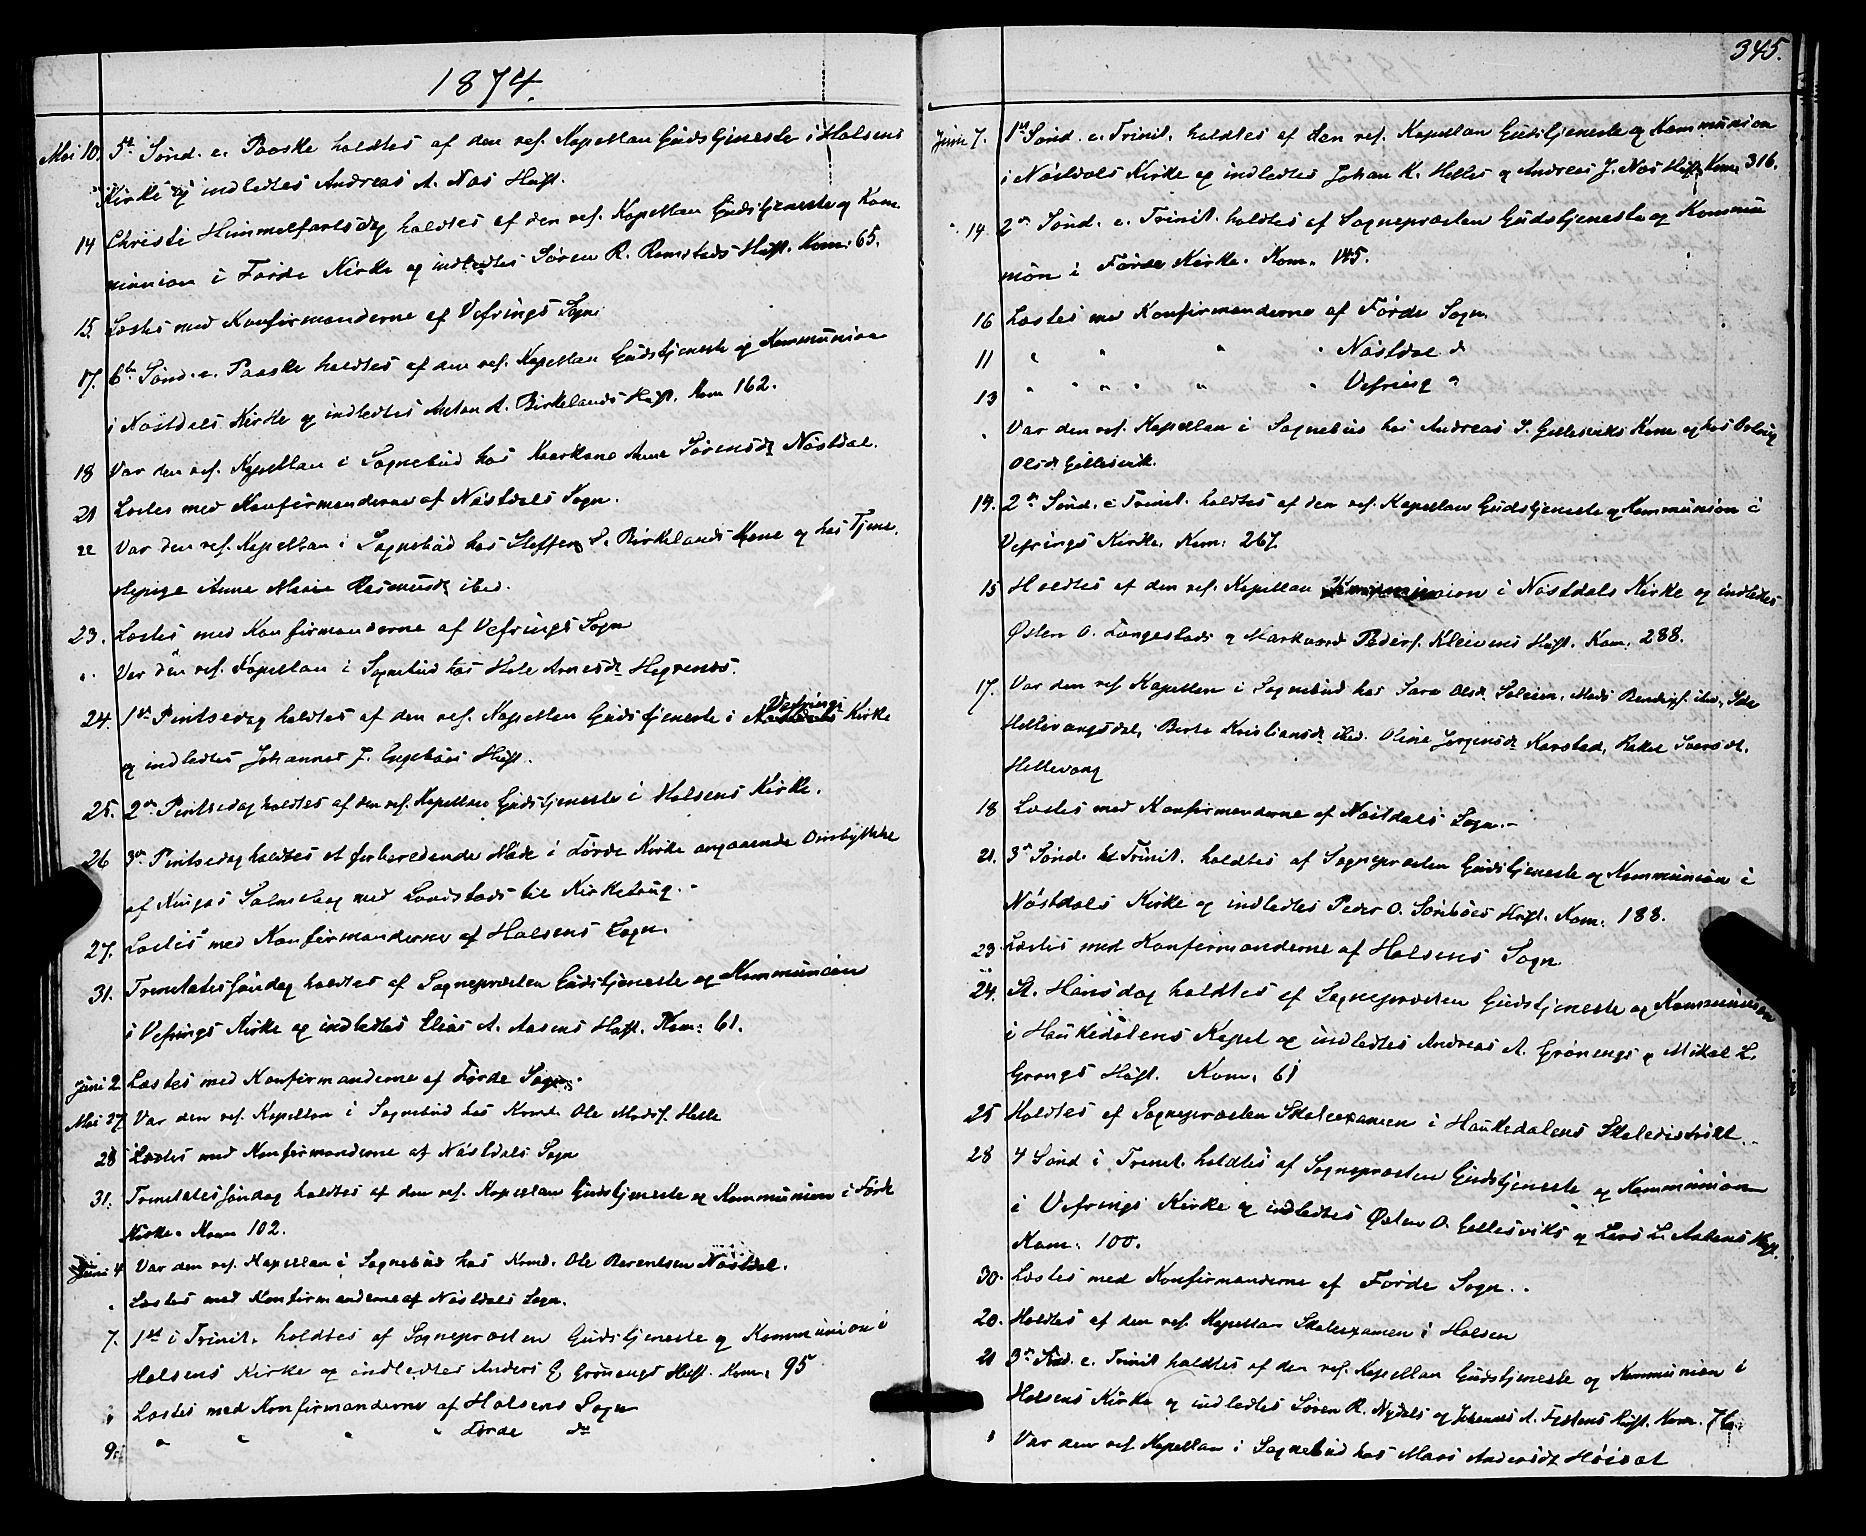 1874.
Mai 10. 5te Sønd. e. Paaske holdtes af den ref. Kapellan Gudstjeneste i Holsens
Kirke og indledtes Andreas A. Naos Hust.
14 Christi Himmelfartsdag holdtes af den ref. Kapellan Gudstjeneste og Kom
munion i Førde Kirke og indledtes Søren R. Ramstads Hust. Kom: 65.
15. Læstes med Konfirmanderne af Vefrings Sogn
17. 6te Sønd. e. Paaske holdtes af den ref. Kapellan Gudstjeneste og Kommunion
i Nöstdals Kirke og indledtes Anton A. Birkelands Hust. Kom 162.
18 Var den ref. Kapellan i Sognebud hos Anne Sørensdt Nöstdal.
21 Læstes med Konfirmanderne af Nöstdals Sogn.
22 Var den ref. Kapellan i Sognebud hos Steffen S. Birkelands Kone og hos Tjene
stepige Anne Marie Rasmusdt ibid.
23. Læstes med Konfirmanderne af Vefrings Sogn
" Var den ref. Kapellan i Sognebud hos Arnesdt Hegrenes.
24. 1ste Pintsedag holdtes af den ref. Kapellan Gudstjeneste i Vefrings Kirke
og indledtes Johannes J. Engebøes Hust.
25. 2den Pintsedag holdtes af den ref. Kapellan Gudstjeneste i Holsens Kirke.
26 3die Pintsedag holdtes et forberedende Møde i Førde Kirke angaaende Ombyttelse
af Kingos Salmebog med Landstads til Kirkebrug.
27. Læstes med Konfirmanderne af Holsens Sogn.
31. Trinitatissøndag holdtes af Sognepresten Gudstjeneste og Kommunion
i Vefrings Kirke og indledtes Elias A. Aasens Hust. Kom: 61.
Juni 2 Læstes med Konfirmanderne af Førde Sogn.
Mai 27. Var den ref. Kapellan i Sognebud hos Ole Madsf. Helle
28 Læstes med Konfirmanderne af Nöstdals Sogn
31. Trinitatessøndag holdtes af den ref. Kapellan Gudstjeneste og Kommunion i Førde
Kirke. Kom 102.
Juni 4 Var den ref. Kapellan i Sognebud hos Ole Berentsen Nöstdal.
" Læstes med Konfirmanderne af Nöstdals Sogn.
7. 1ste i Trinit. holdtes af Sognepresten Gudstjeneste og Kommunion i
Holsens Kirke og indledtes Anders E Grönengs Hust. Kom: 95
" Læstes med Konfirmanderne af Holsens Sogn
9. " " " " Førde do
345.
Juni 7. 1ste Sønd. e. Trinit. holdtes af den ref. Kapellan Gudstjeneste og Kommunion
i Nöstdals Kirke og indledtes Johan K. Helles og Andreas J. Naos Hust. Kom. 316.
" 14. 2den Sønd. e. Trinit. holdtes af Sognepresten Gudstjeneste og Kommu
nion i Førde Kirke. Kom. 145.
16 Læstes med Konfirmanderne af Førde Sogn.
11 " " " " Nöstdal d
13 " " " " " " Vefring "
" Var den ref. Kapellan i Sognebud hos Andreas S. Gjellesviks Kone og hos
Olsdt Gjellesvik.
14. 2den Sønd. e Trinit. holdtes af den ref. Kapellan Gudstjeneste og Kommunion i
Vefrings Kirke. Kom. 267.
15 Holdtes af den ref. Kapellan Kommunion i Nöstdals Kirke og indledtes
Østen O. Langestads og Pedersf. Kleivens Hust. Kom. 288.
17. Var den ref Kapellan i Sognebud hos Sara Olsdt Solheim, Mads Bendixf. ibid.,
Hellevangsdal, Berte Kristiansdt ibid. Oline Jørgensdt Karstad, Rakel
Hellevang
18 Læstes med Konfirmanderne af Nöstdals Sogn.
21. 3die Sønd. Trinit. holdtes af Sognepresten Gudstjeneste og Kommunion i
Nöstdals Kirke og indledtes Peder O. Sørebøes Hust. Kom. 188.
23 Læstes med Konfirmanderne af Holsens Sogn
24. St. Hansdag holdtes af Sognepresten Gudstjeneste og Kommunion
i Haukedalens Kapel og indledtes Andreas A. Grönengs og Mikal L.
Grongs Hust. Kom. 61
25 Holdtes af Sognepresten Skoleexamen i Haukedalens Skoledistrikt.
28 4 Sønd i Trinit. holdtes af Sognepresten Gudstjeneste og Kommunion
i Vefrings Kirke og indledtes Østen O. Gjellesviks og Lars L. Aasens Hust.
Kom. 100.
30. Læstes med Konfirmanderne af Førde Sogn.
20. Holdtes af den ref. Kapellan Skoleexamen i Holsen
21 3die Sønd. e. Trinit holdtes af den ref. Kapellan Gudstjeneste og Kommunion i
Holsens Kirke og indledtes Søren R. Nydals og Johannes A. Hust. Kom. 76.
" Var den ref. Kapellan i Sognebud hos Mari Andersdt Höivat